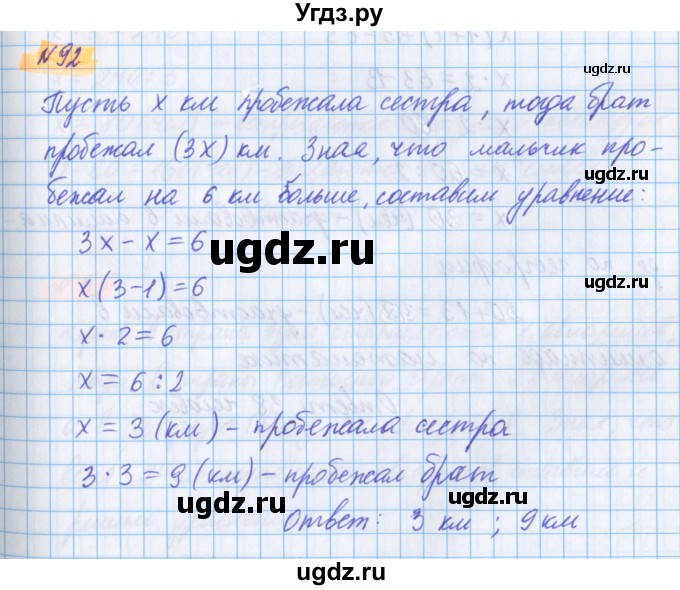 Угдз.ру
№92
Пусть х км пробежала сестра, тогда брат
пробежал (3х) км. Зная, что мальчик про-
бежал на 6 км больше, составим уравнение:
3х - х = 6
х(3-1) = 6
х · 2 = 6
х = 6 : 2
х = 3 (км) - пробежала сестра
3 · 3 = 9 (км) - пробежал брат
Ответ: 3 км ; 9 км
ugdz.ru
ugdz.ru
ugdz.ru
ugdz.ru
ugdz.ru
ugdz.ru
ugdz.ru
ugdz.ru